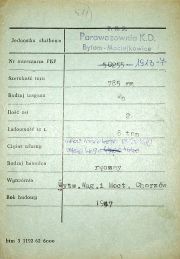 P.K.P.
Jednostka służbowa Parowozownia K.D.
Bytom-Maciejkowice
Nr inwentarza PKP 1913-7
Szerokość toru 785 mm
Rodzaj wagonu
Ilość osi 2
Ładowność w t. 6 ton
Ciężar własny
Rodzaj hamulca ręczny
Wytwórnia Wytw.Wag.i Most. Chorzów
Rok budowy 1947